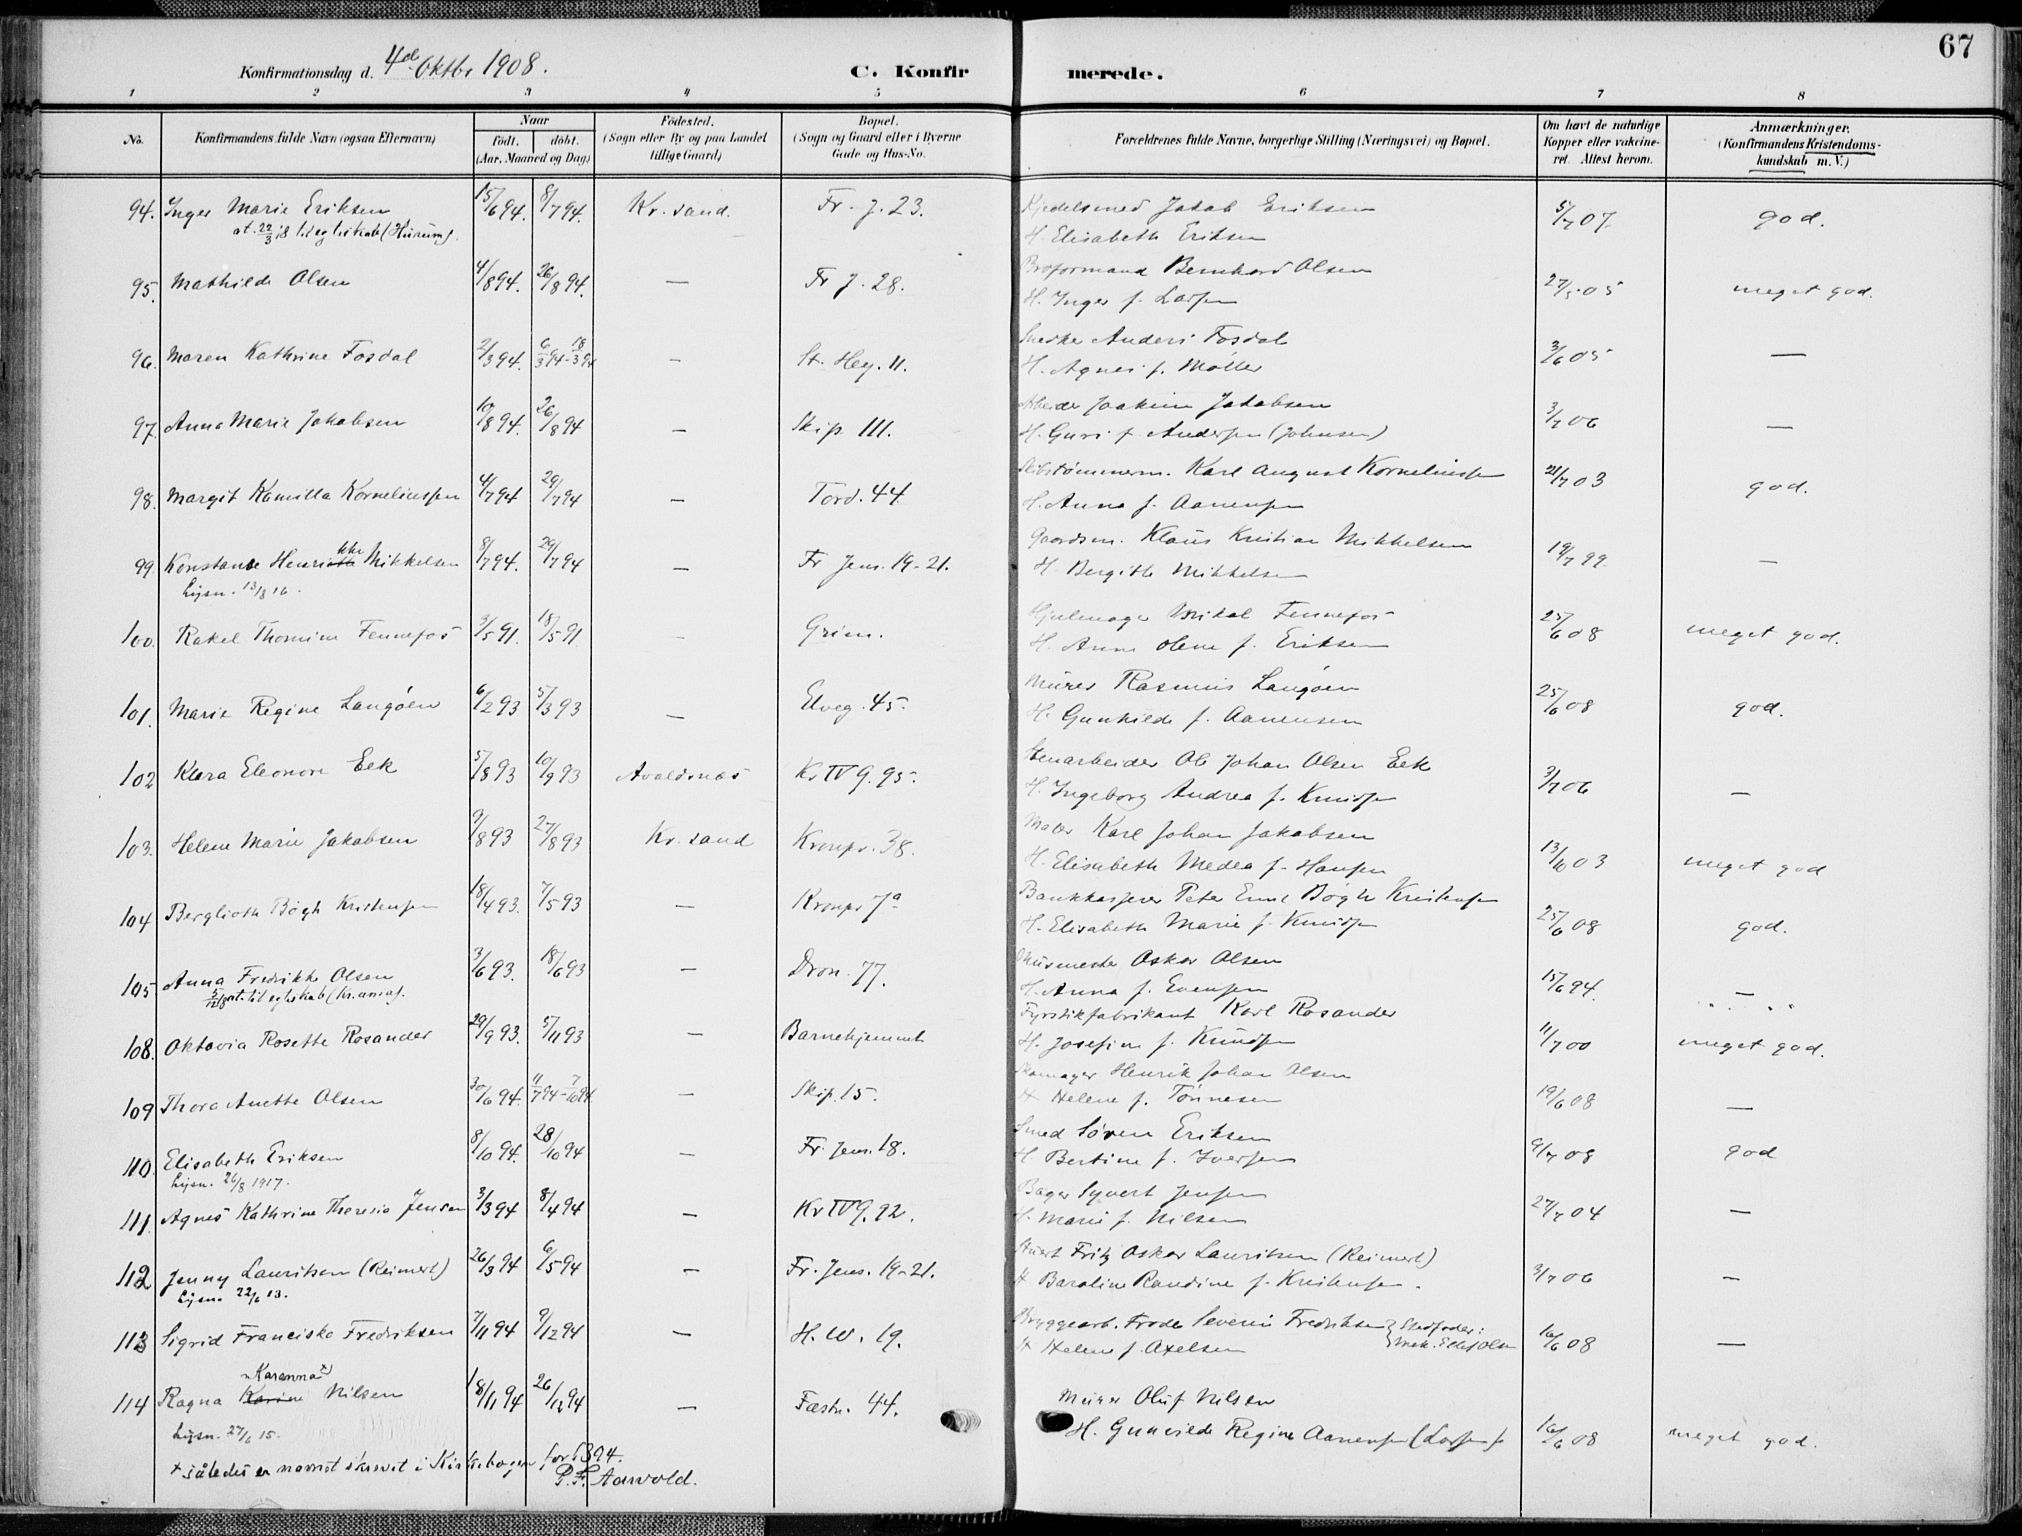 67
Konfirmationsdag d. 4de Oktbr 1908.
C. Konfirmerede.
1 2 3 4 5 6 7 8
No.
Konfirmandens fulde Navn (ogsaa Efternavn)
Naar
født. døbt.
(Aar, Maaned og Dag)
Fødested.
(Sogn eller By og paa Landet
tillige Gaard)
Bopæl.
(Sogn og Gaard eller i Byerne
Gade og Hus-No.
Forældrenes fulde Navne, borgerlige Stilling (Næringsvei) og Bopæl.
Om havt de naturlige
Kopper eller vakcine-
ret. Attest herom.
Anmærkninger.
(Konfirmandens Kristendoms-
kundskab m. V.)
94. Inger Marie Eriksen 15/6 94. 8/7 94. Kr.sand. Fr. J. 23. Kjedelsmed Jakob Eriksen 5/7 07. god.
at. 22/3 18 til egteskab (Hurum).
H. Elisabeth Eriksen
95. Mathilde Olsen 4/8 94. 26/8 94. — Fr J. 28. Broformand Bernhard Olsen 27/5 05 meget god.
H. Inger f. Larsen
96. Maren Kathrine Fosdal 2/3 94. 6/3 94 - 18/3 94 — St. Heg. 11. Snedker Anders Fosdal 3/6 05 —
H. Agnes f. Møller
97. Anna Marie Jakobsen 10/8 94. 26/8 94 — Skip. 111. Arbeider Joakim Jakobsen 3/7 06 —
H. Guri f. Andersen (Johnsen)
98. Margit Kamilla Korneliussen 4/7 94 29/7 94 — Tord. 44 Skibstømmerm. Karl August Korneliussen 21/7 03 god.
H. Anna f. Aanensen
99 Konstance Henrikke Mikkelsen 8/7 94. 29/7 94 — Fr Jens. 19-21. Gaardsm. Klaus Kristian Mikkelsen 19/7 99. —
Lysn. 13/8 16.
H. Bergithe Mikkelsen
100. Rakel Thomine Fennefos 3/5 91. 18/5 91 — Grim. Hjulmager Mikal Fennefos 25/6 08 meget god.
H. Anne Olene f. Eriksen
101. Marie Regine Langøen 6/2 93 5/3 93 — Elveg. 45. Murer Rasmus Langøen 25/6 08 god.
H. Gunhilde f. Aanensen
102 Klara Eleonore Eek 5/8 93 10/9 93 Avaldsnæs Kv IV 9. 95. Stenarbeider Ole Johan Olsen Eek 3/7 06 —
H. Ingeborg Andrea f. Knudsen
103. Helene Marie Jakobsen 9/8 93 27/8 93 Kr.sand Kronpr. 38. Maler Karl Johan Jakobsen 13/10 03 meget god
H. Elisabeth Medea f. Hansen
104 Berglioth Bøgh Kristensen 18/4 93. 7/5 93 — Kronpr 7a Bankkasserer Peter Emil Bøgh Kristensen 25/6 08 god.
H. Elisabeth Marie f. Knudsen
105. Anna Fredrikke Olsen 3/6 93. 18/6 93 — Dron. 77. Oskar Olsen 15/6 94. —
5/12 18 at. til egteskab (Kr.ania).
H. Anna f. Evensen
108. Oktavia Rosette Rosander 29/9 93. 5/11 93 — Barnehjemmet Fyrstikfabrikant Karl Rosander 11/7 00 meget god.
H. Josefine f. Knudsen
109 Thora Anette Olsen 30/6 94. 11/7 94 - 7/10 94 — Skip. 15. Skomager Henrik Johan Olsen 19/6 08 —
H Helene f. Tønnesen
110 Elisabeth Eriksen 8/10 94. 28/10 94 — Fr. Jens. 18. Smed Søren Eriksen 9/7 08 god
Lysn. 26/8 1917.
H Bertine f. Iversen
111. Agnes Kathrine Theresia Jensen 3/3 94 8/4 94 — Kv IV 9. 92. Bager Syvert Jensen 27/7 04 —
H. Marie f. Nilsen
112 Jenny Lauritsen (Reimert) 26/3 94 6/5 94 — Fr. Jens. 19-21. Fritz Oskar Lauritsen (Reimert) 3/7 06 —
Lysn. 22/6 13.
H Baroline Randine f. Kristensen.
113 Sigrid Franciska Fredriksen 7/11 94 9/12 94 — H. W. 19. Bryggearb. Frode Severin Fredriksen } Stedfader: 16/6 08 —
H Helene f. Axelsen
114 Ragna Karine "Karenna" x) Nilsen 18/11 94 26/12 94 — Fæstn. 44. Murer Oluf Nilsen 16/6 08 meget god.
Lysn. 27/6 15.
H. Gunvilde Regine Aanensen (Larsen)
x således er navnet skrevet i Kirkebogen for 1894.
P. F. Aarvold.